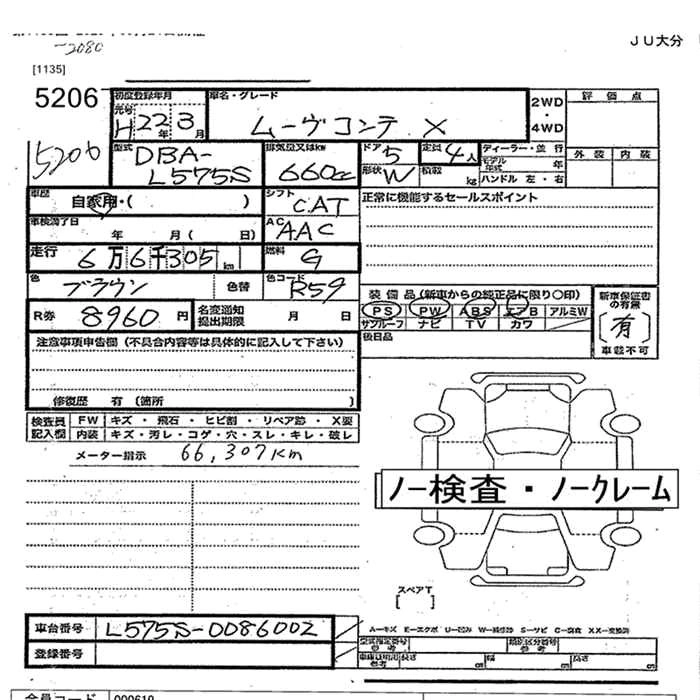 -2080
JU大分
[1135]
5206
初度登録年月 車名・グレード 2WD・4WD 評価点
元号 H 22年 3月 ムーヴコンテ X 外装 内装
5206
型式 DBA-L575S 排気量又はkw 660cc ドア 5 形状 W 定員 4人 積載 kg ディーラー・並行 モデル年式 年 ハンドル 左・右
車歴 自家用・( ) シフト CAT 正常に機能するセールスポイント
車検満了日 年 月( 日) AC AAC
走行 6万6千305km 燃料 G
色 ブラウン 色替 色コード R59
装備品(新車からの純正品に限り○印) 新車保証書の有無
R券 8960円 名変通知提出期限 月 日 PS PW ABS エアB アルミW [有]
サンルーフ ナビ TV カワ 車載不可
後日品
注意事項申告欄(不具合内容等は具体的に記入して下さい)
修復歴 有(箇所 )
検査員記入欄 FW キズ・飛石・ヒビ割・リペア跡・X要
内装 キズ・汚レ・コゲ・穴・スレ・キレ・破レ
メーター指示 66,307km
ノー検査・ノークレーム
スペアT
[ ]
車台番号 L575S-0086002
A-キズ E-エクボ U-凹み W-補修跡 S-サビ C-腐食 XX-交換済
登録番号
型式指定番号 参考 類別区分番号 参考
車庫証明用 参考 長さ 幅 高さ
会員コード 000619